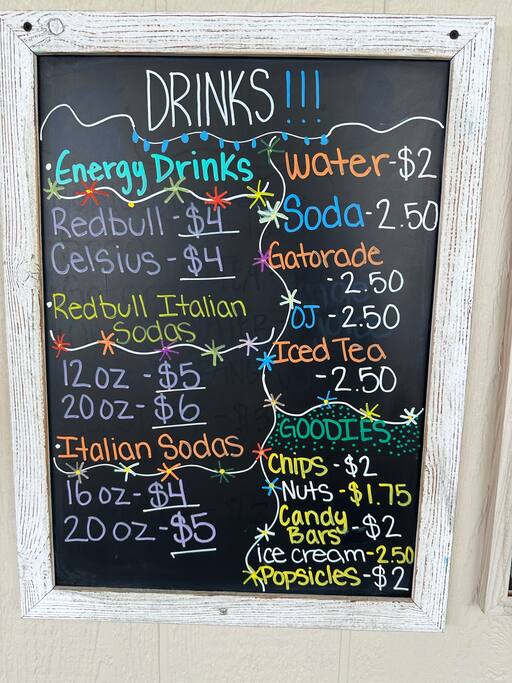 DRINKS!!!
Energy Drinks
Redbull - $4
Celsius - $4
Redbull Italian
Sodas
12 oz - $5
20 oz - $6
Italian Sodas
16 oz - $4
20 oz - $5
Water - $2
Soda - 2.50
Gatorade
- 2.50
OJ - 2.50
Iced Tea
- 2.50
GOODIES
Chips - $2
Nuts - $1.75
Candy
Bars - $2
ice cream - 2.50
Popsicles - $2